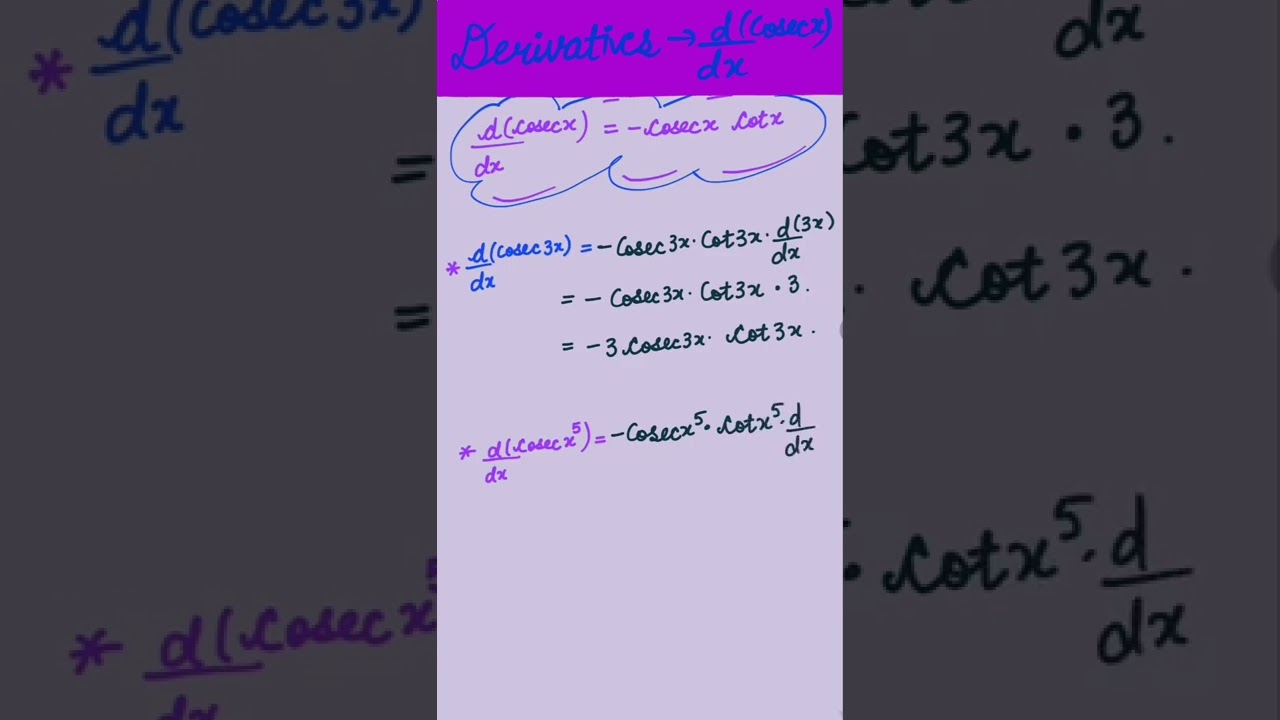 Derivatives → d(Cosecx)/dx
d(Cosecx)/dx = -Cosecx Cotx
* d(Cosec3x)/dx = -Cosec3x · Cot3x · d(3x)/dx
= - Cosec3x · Cot3x · 3.
= -3 Cosec3x · Cot3x .
* d(Cosecx⁵)/dx = -Cosecx⁵ · Cotx⁵ · d/dx